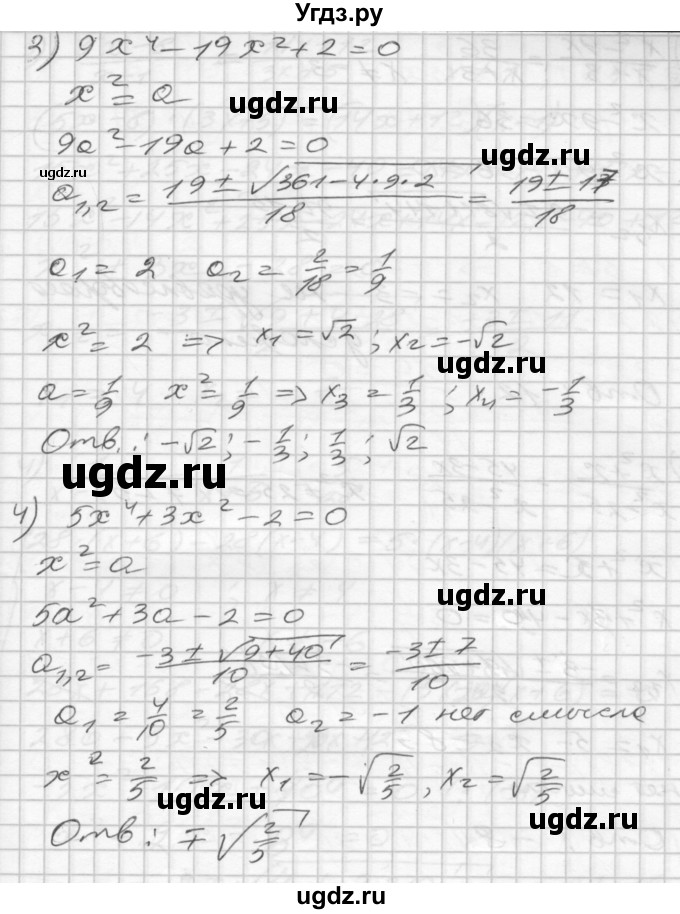 Угдз.ру
3) 9x⁴ − 19x² + 2 = 0
x² = a
ugdz.ru
9a² − 19a + 2 = 0
ugdz.ru
ugdz.ru
a₁,₂ = (19 ± √(361 − 4·9·2))/18 = (19 ± 17)/18
a₁ = 2 a₂ = 2/18 = 1/9
x² = 2 => x₁ = √2 ; x₂ = −√2
ugdz.ru
a = 1/9 x² = 1/9 => x₃ = 1/3 ; x₄ = −1/3
Отв.: −√2 ; −1/3 ; 1/3 ; √2
ugdz.ru
4) 5x⁴ + 3x² − 2 = 0
x² = a
ugdz.ru
5a² + 3a − 2 = 0
a₁,₂ = (−3 ± √(9 + 40))/10 = (−3 ± 7)/10
a₁ = 4/10 = 2/5 a₂ = −1 нет смысла
x² = 2/5 => x₁ = −√(2/5) , x₂ = √(2/5)
ugdz.ru
ugdz.ru
Отв: ∓√(2/5)
ugdz.ru